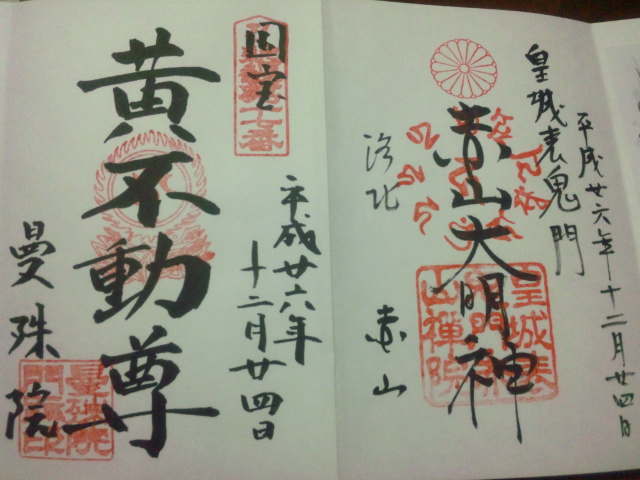 皇城表鬼門
平成廿六年十二月廿四日
赤山大明神
洛北
赤山
皇城表
鬼門
山禅院
国宝
黄不動尊
平成廿六年
十二月廿四日
曼殊院